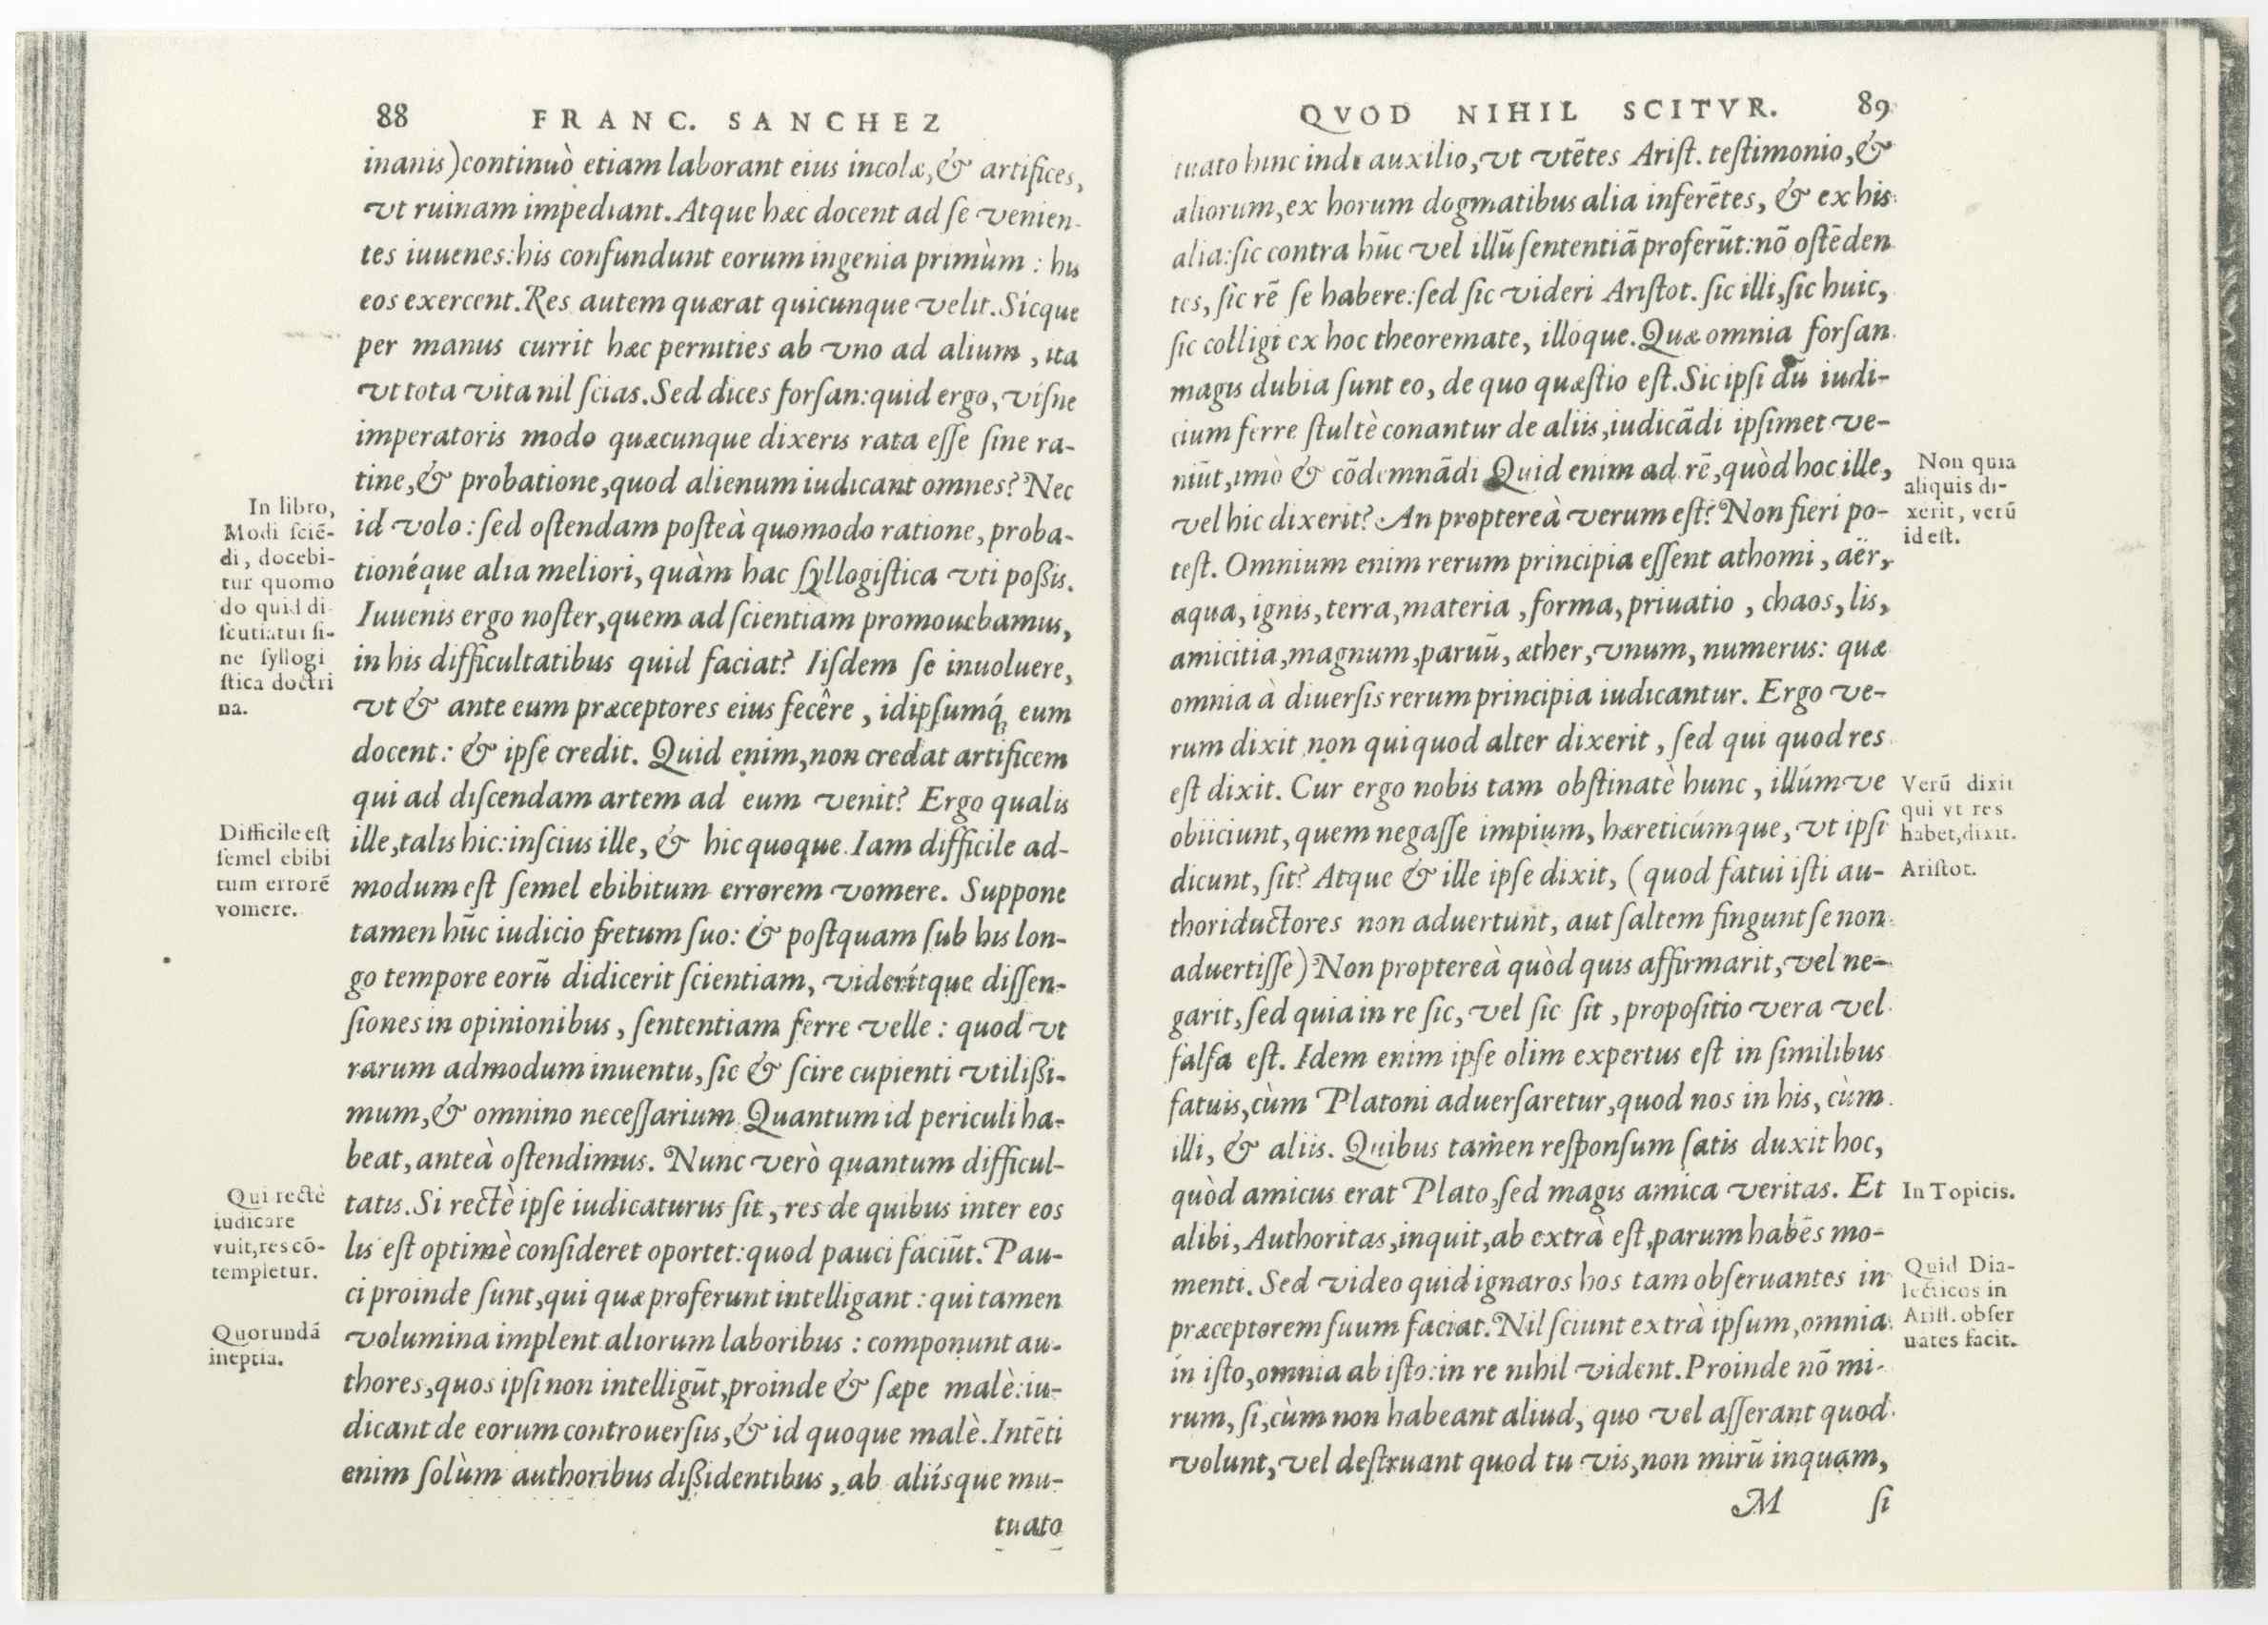 88 FRANC. SANCHEZ
inanis)continuò etiam laborant eius incolæ, & artifices,
vt ruinam impediant. Atque hæc docent ad ſe venien-
tes iuuenes: his confundunt eorum ingenia primùm : his
eos exercent. Res autem quærat quicunque velit. Sicque
per manus currit hæc pernities ab vno ad alium, ita
vt tota vita nil ſcias. Sed dices forſan: quid ergo, viſne
imperatoris modo quæcunque dixeris rata eſſe ſine ra-
tine, & probatione, quod alienum iudicant omnes? Nec
id volo: ſed oſtendam poſteà quomodo ratione, proba-
tionéque alia meliori, quàm hac ſyllogiſtica vti poßis.
Iuuenis ergo noſter, quem ad ſcientiam promouebamus,
in his difficultatibus quid faciat? Iiſdem ſe inuoluere,
vt & ante eum præceptores eius fecêre, idipſumq́; eum
docent: & ipſe credit. Quid enim, non credat artificem
qui ad diſcendam artem ad eum venit? Ergo qualis
ille, talis hic: inſcius ille, & hic quoque. Iam difficile ad-
modum eſt ſemel ebibitum errorem vomere. Suppone
tamen hũc iudicio fretum ſuo: & poſtquam ſub his lon-
go tempore eorũ didicerit ſcientiam, viderítque diſſen-
ſiones in opinionibus, ſententiam ferre velle: quod vt
rarum admodum inuentu, ſic & ſcire cupienti vtilißi-
mum, & omnino neceſſarium. Quantum id periculi ha-
beat, anteà oſtendimus. Nunc verò quantum difficul-
tatis. Si rectè ipſe iudicaturus ſit, res de quibus inter eos
lis eſt optimè conſideret oportet: quod pauci faciũt. Pau-
ci proinde ſunt, qui quæ proferunt intelligant: qui tamen
volumina implent aliorum laboribus: componunt au-
thores, quos ipſi non intelligũt, proinde & ſæpe malè: iu-
dicant de eorum controuerſiis, & id quoque malè. Intẽti
enim ſolùm authoribus dißidentibus, ab aliíſque mu-
tuato
In libro,
Modi ſciẽ-
di, docebi-
tur quomo
do quid di
ſcutiatur ſi-
ne ſyllogi
ſtica doctri
na.
Difficile eſt
ſemel ebibi
tum errorẽ
vomere.
Qui rectè
iudicare
vult, res cõ-
templetur.
Quorundã
ineptia.
QVOD NIHIL SCITVR. 89
tuato hinc inde auxilio, vt vtẽtes Ariſt. teſtimonio, &
aliorum, ex horum dogmatibus alia inferẽtes, & ex his
alia: ſic contra hũc vel illũ ſententiã proferũt: nõ oſtẽden
tes, ſic rẽ ſe habere: ſed ſic videri Ariſtot. ſic illi, ſic huic,
ſic colligi ex hoc theoremate, illóque. Quæ omnia forſan
magis dubia ſunt eo, de quo quæſtio eſt. Sic ipſi dũ iudi-
cium ferre ſtultè conantur de aliis, iudicãdi ipſimet ve-
niũt, imò & cõdemnãdi. Quid enim ad rẽ, quòd hoc ille,
vel hic dixerit? An proptereà verum eſt? Non fieri po-
teſt. Omnium enim rerum principia eſſent athomi, aër,
aqua, ignis, terra, materia, forma, priuatio, chaos, lis,
amicitia, magnum, paruũ, æther, vnum, numerus: quæ
omnia à diuerſis rerum principia iudicantur. Ergo ve-
rum dixit non qui quod alter dixerit, ſed qui quod res
eſt dixit. Cur ergo nobis tam obſtinatè hunc, illúmve
obiiciunt, quem negaſſe impium, hæreticúmque, vt ipſi
dicunt, ſit? Atque & ille ipſe dixit, (quod fatui iſti au-
thoriductores non aduertunt, aut ſaltem fingunt ſe non
aduertiſſe) Non proptereà quòd quis affirmarit, vel ne-
garit, ſed quia in re ſic, vel ſic ſit, propoſitio vera vel
falſa eſt. Idem enim ipſe olim expertus eſt in ſimilibus
fatuis, cùm Platoni aduerſaretur, quod nos in his, cùm
illi, & aliis. Quibus tamen reſponſum ſatis duxit hoc,
quòd amicus erat Plato, ſed magis amica veritas. Et
alibi, Authoritas, inquit, ab extrà eſt, parum habẽs mo-
menti. Sed video quid ignaros hos tam obſeruantes in
præceptorem ſuum faciat. Nil ſciunt extrà ipſum, omnia
in iſto, omnia ab iſto: in re nihil vident. Proinde nõ mi-
rum, ſi, cùm non habeant aliud, quo vel aſſerant quod
volunt, vel deſtruant quod tu vis, non mirũ inquam,
M ſi
Non quia
aliquis di-
xerit, verũ
id eſt.
Verũ dixit
qui vt res
habet, dixit.
Ariſtot.
In Topicis.
Quid Dia-
lecticos in
Ariſt. obſer
uãtes facit.